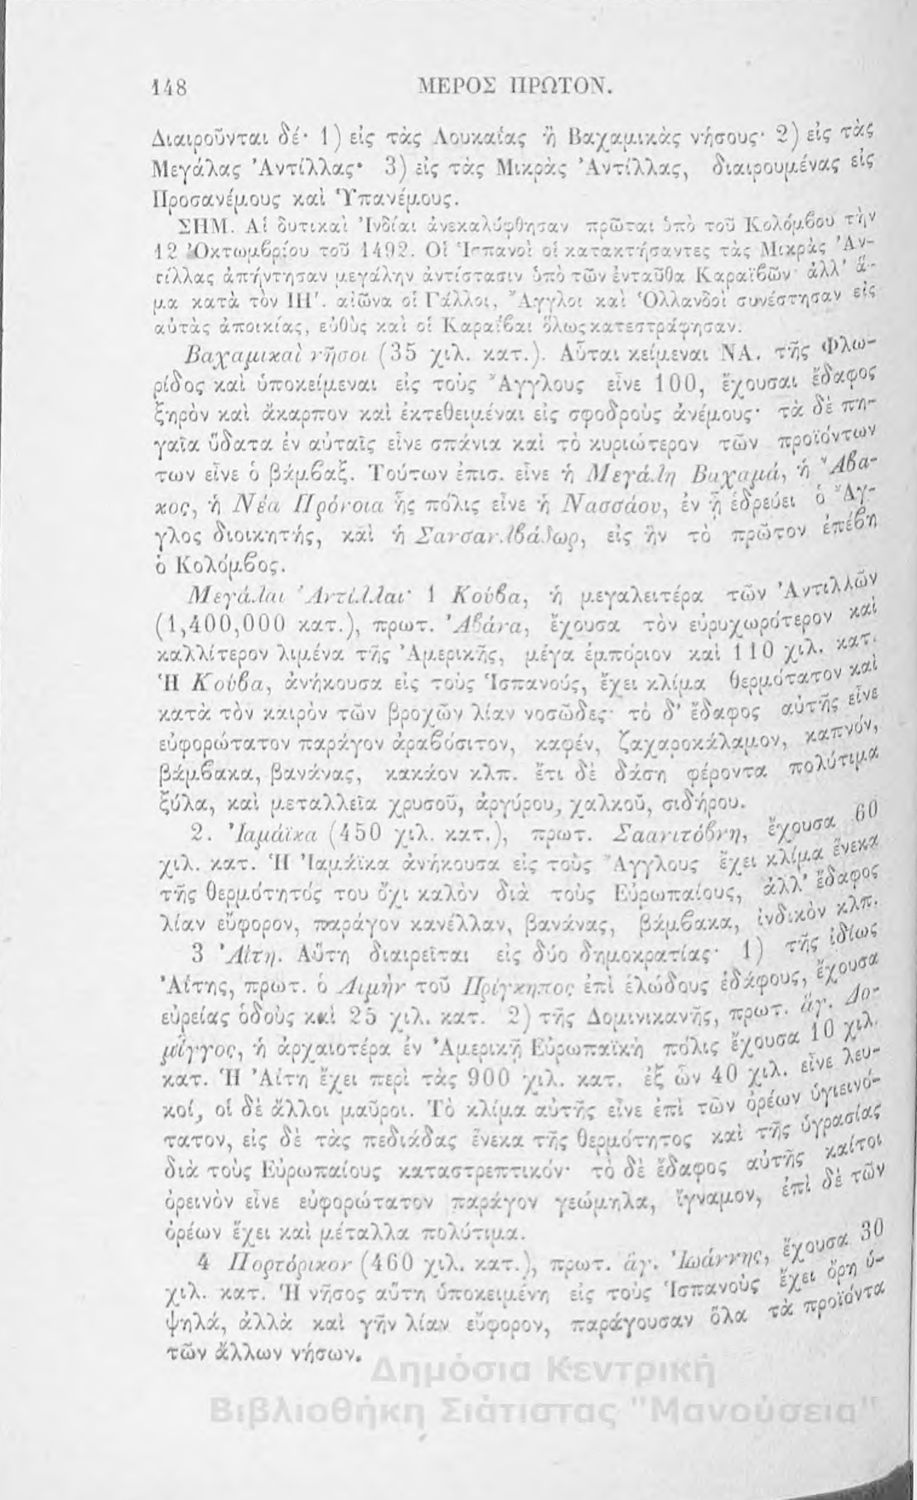 148 ΜΕΡΟΣ ΠΡΩΤΟΝ.
Διαιροῦνται δέ· 1) εἰς τὰς Λουκαίας ἢ Βαχαμικὰς νήσους· 2) εἰς τὰς
Μεγάλας Ἀντίλλας· 3) εἰς τὰς Μικρὰς Ἀντίλλας, διαιρουμένας εἰς
Προσανέμους καὶ Ὑπανέμους.
ΣΗΜ. Αἱ δυτικαὶ Ἰνδίαι ἀνεκαλύφθησαν πρῶται ὑπὸ τοῦ Κολόμβου τὴν
12 Ὀκτωμβρίου τοῦ 1492. Οἱ Ἱσπανοὶ οἱ κατακτήσαντες τὰς Μικρὰς Ἀν-
τίλλας ἀπήντησαν μεγάλην ἀντίστασιν ὑπὸ τῶν ἐνταῦθα Καραϊβῶν· ἀλλ' ἅ-
μα κατὰ τὸν ΙΗ'. αἰῶνα οἱ Γάλλοι, Ἄγγλοι καὶ Ὁλλανδοὶ συνέστησαν εἰς
αὐτὰς ἀποικίας, εὐθὺς καὶ οἱ Καραΐβαι ὅλως κατεστράφησαν.
Βαχαμικαὶ νῆσοι (35 χιλ. κατ.). Αὗται κείμεναι ΝΑ. τῆς Φλω-
ρίδος καὶ ὑποκείμεναι εἰς τοὺς Ἄγγλους εἶνε 100, ἔχουσαι ἔδαφος
ξηρὸν καὶ ἄκαρπον καὶ ἐκτεθειμέναι εἰς σφοδροὺς ἀνέμους· τὰ δὲ πη-
γαῖα ὕδατα ἐν αὐταῖς εἶνε σπάνια καὶ τὸ κυριώτερον τῶν προϊόντων
των εἶνε ὁ βάμβαξ. Τούτων ἐπισ. εἶνε ἡ Μεγάλη Βαχαμά, ἡ Ἄβα-
κος, ἡ Νέα Πρόνοια ἧς πόλις εἶνε ἡ Νασσάου, ἐν ᾗ ἑδρεύει ὁ Ἄγ-
γλος διοικητής, καὶ ἡ Σανσαλβάδωρ, εἰς ἣν τὸ πρῶτον ἐπέβη
ὁ Κολόμβος.
Μεγάλαι Ἀντίλλαι· 1 Κούβα, ἡ μεγαλειτέρα τῶν Ἀντιλλῶν
(1,400,000 κατ.), πρωτ. Ἀβάνα, ἔχουσα τὸν εὐρυχωρότερον καὶ
καλλίτερον λιμένα τῆς Ἀμερικῆς, μέγα ἐμπόριον καὶ 110 χιλ. κατ.
Ἡ Κούβα, ἀνήκουσα εἰς τοὺς Ἱσπανούς, ἔχει κλίμα θερμότατον καὶ
κατὰ τὸν καιρὸν τῶν βροχῶν λίαν νοσῶδες· τὸ δ' ἔδαφος αὐτῆς εἶνε
εὐφορώτατον παράγον ἀραβόσιτον, καφέν, ζαχαροκάλαμον, καπνόν,
βάμβακα, βανάνας, κακάον κλπ. ἔτι δὲ δάση φέροντα πολύτιμα
ξύλα, καὶ μεταλλεῖα χρυσοῦ, ἀργύρου, χαλκοῦ, σιδήρου.
2. Ἰαμάϊκα (450 χιλ. κατ.), πρωτ. Σααντόβνη, ἔχουσα 60
χιλ. κατ. Ἡ Ἰαμάϊκα ἀνήκουσα εἰς τοὺς Ἄγγλους ἔχει κλίμα ἕνεκα
τῆς θερμότητός του ὄχι καλὸν διὰ τοὺς Εὐρωπαίους, ἀλλ' ἔδαφος
λίαν εὔφορον, παράγον κανέλλαν, βανάνας, βάμβακα, ἰνδικὸν κλπ.
3 Ἀΐτη. Αὕτη διαιρεῖται εἰς δύο δημοκρατίας· 1) τῆς ἰδίως
Ἀΐτης, πρωτ. ὁ Λιμὴν τοῦ Πρίγκηπος ἐπὶ ἑλώδους ἐδάφους, ἔχουσα
εὐρείας ὁδοὺς καὶ 25 χιλ. κατ. 2) τῆς Δομινικανῆς, πρωτ. ἅγ. Δο-
μίγγος, ἡ ἀρχαιοτέρα ἐν Ἀμερικῇ Εὐρωπαϊκὴ πόλις ἔχουσα 10 χιλ.
κατ. Ἡ Ἀΐτη ἔχει περὶ τὰς 900 χιλ. κατ. ἐξ ὧν 40 χιλ. εἶνε λευ-
κοί, οἱ δὲ ἄλλοι μαῦροι. Τὸ κλίμα αὐτῆς εἶνε ἐπὶ τῶν ὀρέων ὑγιεινό-
τατον, εἰς δὲ τὰς πεδιάδας ἕνεκα τῆς θερμότητος καὶ τῆς ὑγρασίας
διὰ τοὺς Εὐρωπαίους καταστρεπτικόν· τὸ δὲ ἔδαφος αὐτῆς καίτοι
ὀρεινὸν εἶνε εὐφορώτατον παράγον γεώμηλα, ἴγναμον, ἐπὶ δὲ τῶν
ὀρέων ἔχει καὶ μέταλλα πολύτιμα.
4 Πορτόρικον (460 χιλ. κατ.), πρωτ. ἅγ. Ἰωάννης, ἔχουσα 30
χιλ. κατ. Ἡ νῆσος αὕτη ὑποκειμένη εἰς τοὺς Ἱσπανοὺς ἔχει ὄρη ὑ-
ψηλά, ἀλλὰ καὶ γῆν λίαν εὔφορον, παράγουσαν ὅλα τὰ προϊόντα
τῶν ἄλλων νήσων.
Δημόσια Κεντρική
Βιβλιοθήκη Σιάτιστας "Μανούσεια"